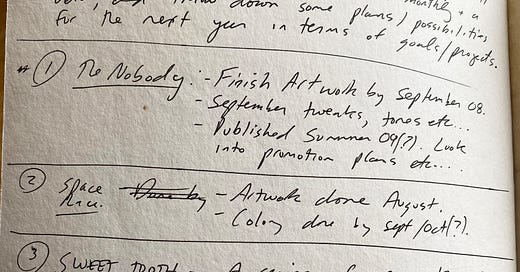 monthly + a
down some plans / possibilities
for the next year in terms of goals/projects.
# ① The Nobody: - Finish Artwork by September 08.
- September tweaks, tones etc...
- Published Summer 09(?). Look
into promotion plans etc...
② Space - Artwork done August.
- Colony done by sept/oct(?).
③ SWEET TOOTH